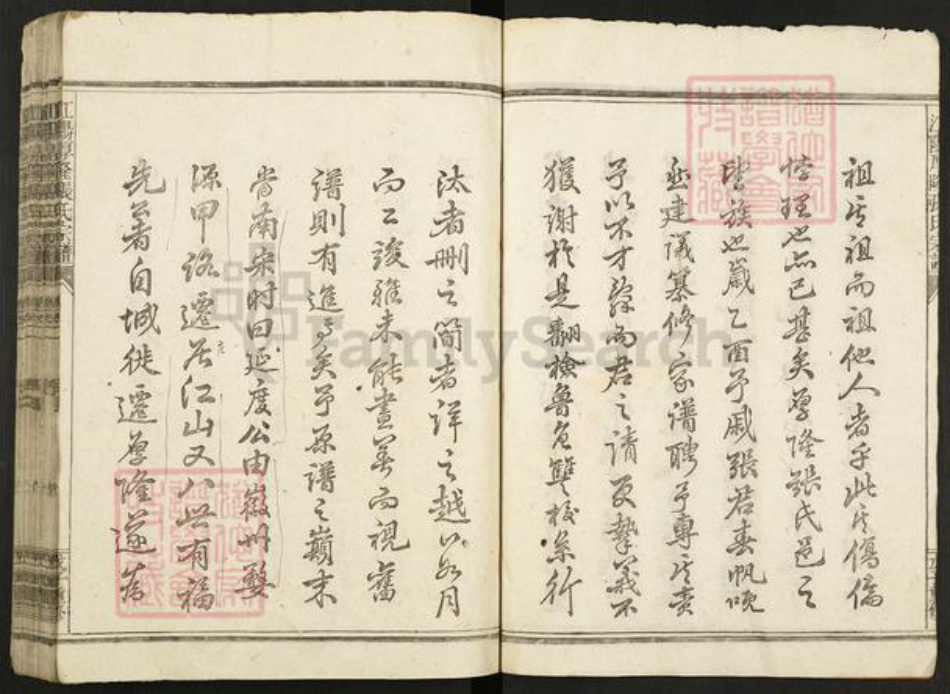 祖其祖而祖他人者乎此其傷倫
悖理也亦已甚矣厚隆張氏邑之
望族也歲乙酉予戚張君春帆
建議纂修家譜聘予專其責
予以不才辭而君之請更摯義不
獲謝於是翻檢魯魚雙校奈行
汰者刪之簡者詳之越八閱月
而工竣雖未能盡善而視舊
譜則有進焉矣予原譜之巔末
當南宋時曰延度公由徽州婺
源甲路遷居江山又八世有福
先者自城徙遷厚隆遂者
FamilySearch